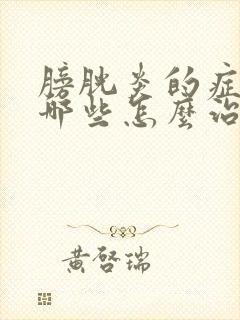 膀胱炎的症
哪些怎麼治
黃啓瑞